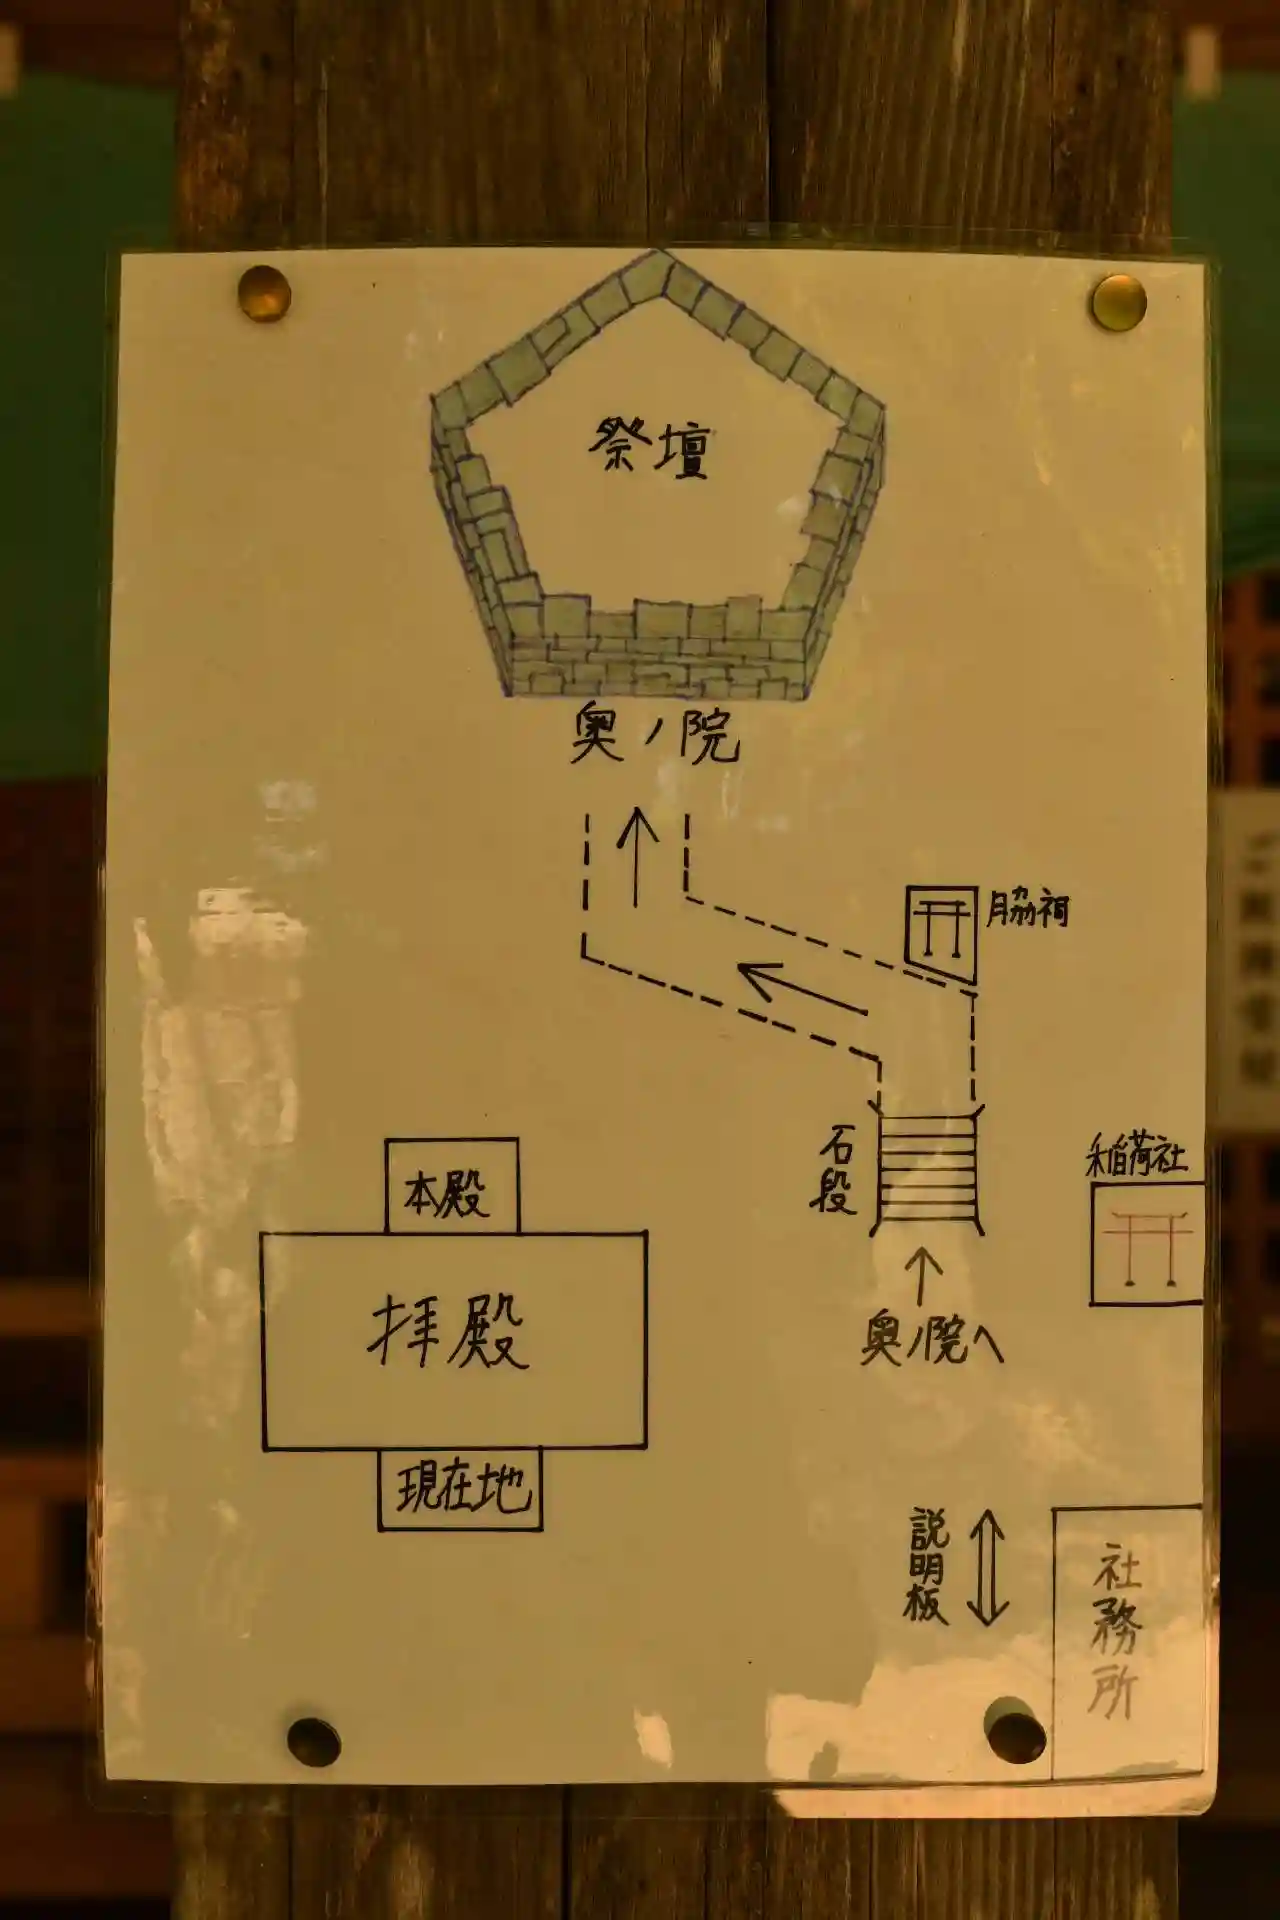 祭壇
奥ノ院
脇祠
石段
稲荷社
本殿
拝殿
奥ノ院へ
現在地
説明板
社務所